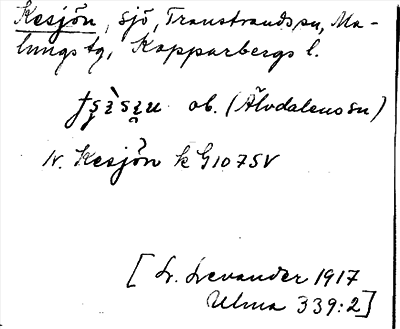 Kesjön, sjö, Transtrands sn, Ma-
lungs tg, Kopparbergs l.
ob. (Älvdalens sn)
lv. Kesjön k G107SV
[L. Levander 1917
Ulma 339:2]